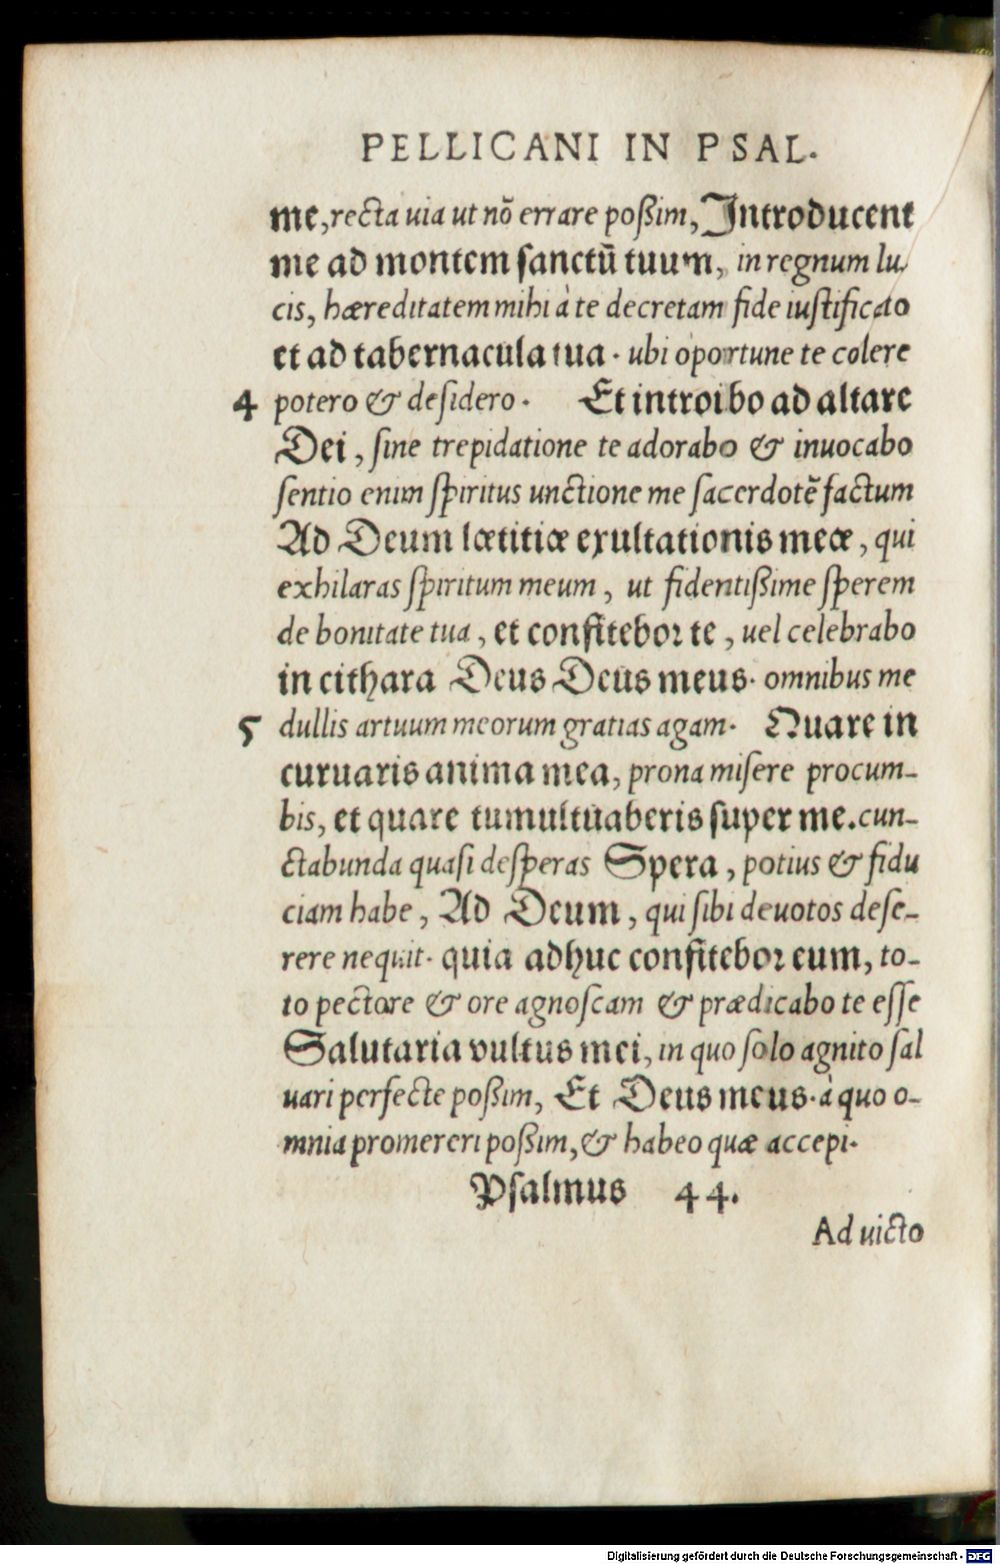 PELLICANI IN PSAL.
me, recta uia ut nō errare poßim, Introducent
me ad montem sanctū tuum, in regnum lu
cis, hæreditatem mihi à te decretam fide iustificato
et ad tabernacula tua. ubi oportune te colere
4 potero & desidero. Et introibo ad altare
Dei, sine trepidatione te adorabo & inuocabo
sentio enim spiritus unctione me sacerdotē factum
Ad Deum lætitiæ exultationis meæ, qui
exhilaras spiritum meum, ut fidentißime sperem
de bonitate tua, et confitebor te, uel celebrabo
in cithara Deus Deus meus. omnibus me
5 dullis artuum meorum gratias agam. Quare in
curuaris anima mea, prona misere procum-
bis, et quare tumultuaberis super me. cun-
ctabunda quasi desperas Spera, potius & fidu
ciam habe, Ad Deum, qui sibi deuotos dese-
rere nequit. quia adhuc confitebor eum, to-
to pectore & ore agnoscam & prædicabo te esse
Salutaria vultus mei, in quo solo agnito sal
uari perfecte poßim, Et Deus meus. à quo o-
mnia promereri poßim, & habeo quæ accepi.
Psalmus 44.
Ad uicto
Digitalisierung gefördert durch die Deutsche Forschungsgemeinschaft - DFG